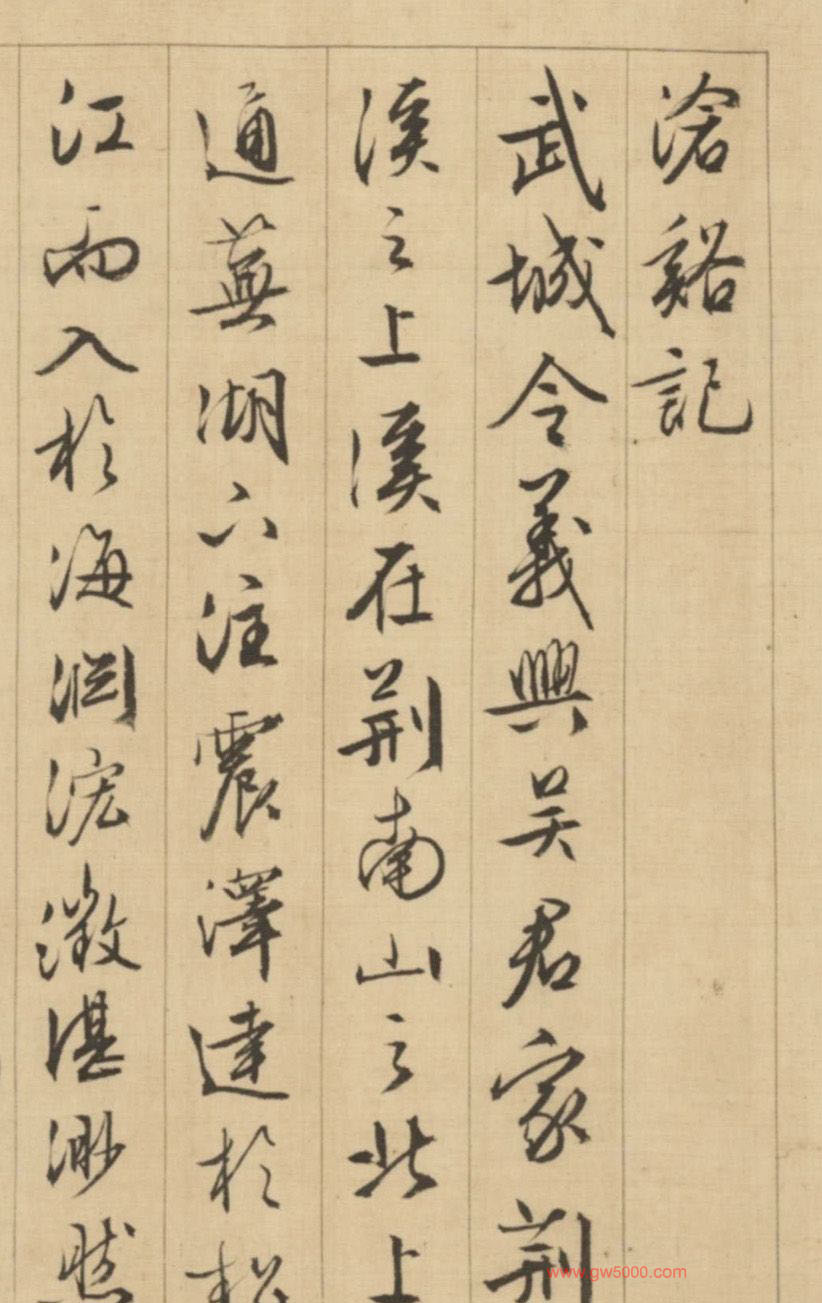 滄谿記
武城令義興吴君家荆
溪之上溪在荆南山之北上
通蕪湖下注震澤達於松
江而入於海渊浤澂湛渺然
www.gw5000.com